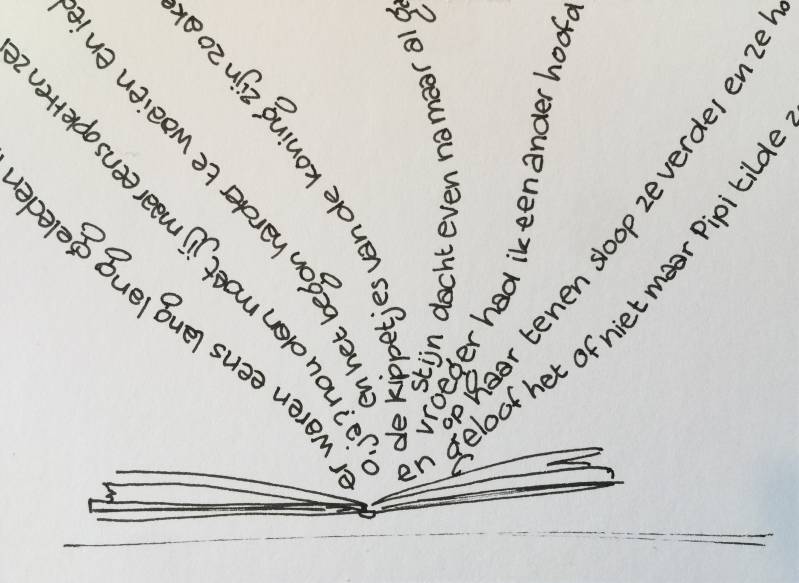 er waren eens lang lang geleden
o, ja? nou dan moet jij maar eens opletten zei
en het begon harder te waaien en ied
de kippetjes van de koning zijn zo
stijn dacht even na maar al
en vroeger had ik een ander hoofd
op haar tenen sloop ze verder en ze
geloof het of niet maar Pipi tilde